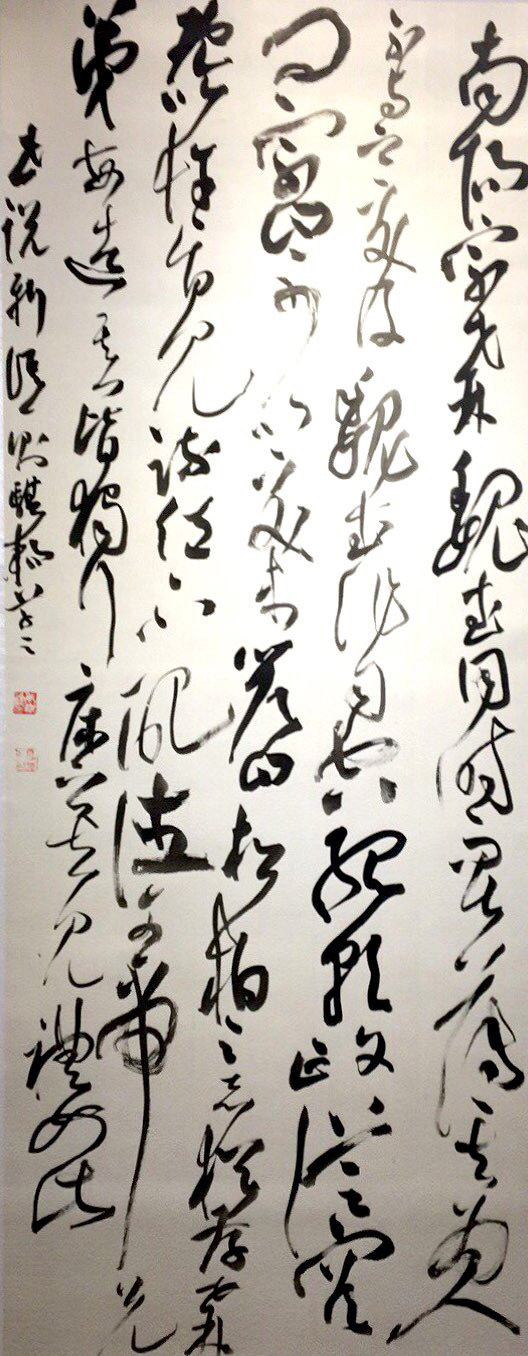 南陽宗世林魏武同時甚薄其為人
不與之交及魏武作司空總朝政從容
問宗曰可以交未答曰松柏之志猶存世林
既以忤旨見疏位不配德文帝兄
弟每造其門皆獨拜床下其見禮如此
世說新語則